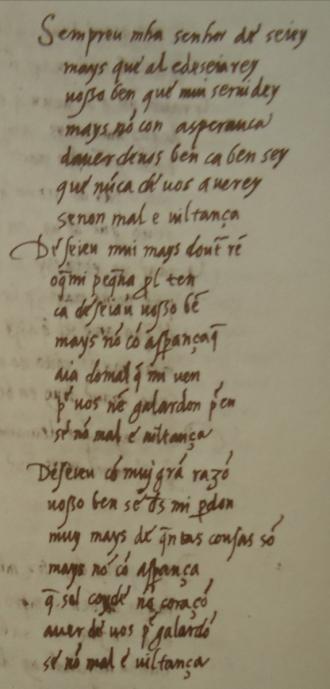 Sempreu mha senhor desseiey
mays que al e desseiarey
uosso ben que mui seruidey
mays nō con asperança
dauer deuos ben ca ben sey
que nūca de uos auerey
senon mal e uiltança
Deseieu mui mays doutr̄ rē
oq̄mi peq̄na pl ten
ca deseiau uosso bē
mays nō cō aspançaq̄
aia domal q̄ mi uen
p̄ uos nē galardon p̄en
se nō mal e uiltança
Deseieu cō muj grā razō
uosso ben se d̄s mi p̄don
muy mays de q̄ntas cousas sō
mays nō cō aspança
q̄ sol coyde nō coraçō
auer de uos p̄ galardō
se nō mal e uiltança